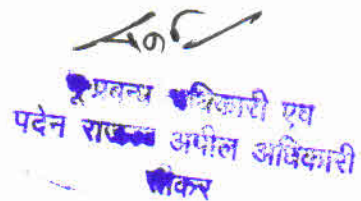 प्रबन्ध अधिकारी एव
पदेन राजस्व अपील अधिकारी
सीकर